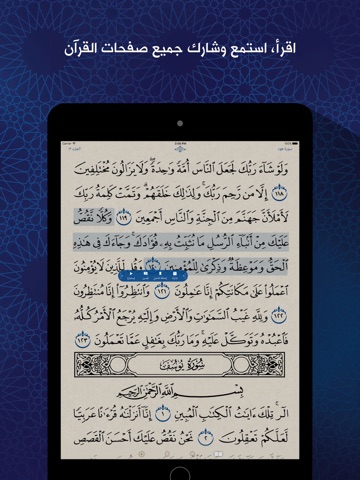 اقرأ، استمع وشارك جميع صفحات القرآن
سورة هود
وَلَوْ شَاءَ رَبُّكَ لَجَعَلَ النَّاسَ أُمَّةً وَاحِدَةً ۖ وَلَا يَزَالُونَ مُخْتَلِفِينَ
١١٨ إِلَّا مَن رَّحِمَ رَبُّكَ ۚ وَلِذَٰلِكَ خَلَقَهُمْ ۗ وَتَمَّتْ كَلِمَةُ رَبِّكَ
لَأَمْلَأَنَّ جَهَنَّمَ مِنَ الْجِنَّةِ وَالنَّاسِ أَجْمَعِينَ ١١٩ وَكُلًّا نَّقُصُّ
عَلَيْكَ مِنْ أَنبَاءِ الرُّسُلِ مَا نُثَبِّتُ بِهِ فُؤَادَكَ ۚ وَجَاءَكَ فِي هَٰذِهِ
الْحَقُّ وَمَوْعِظَةٌ وَذِكْرَىٰ لِلْمُؤْمِنِينَ وَقُل لِّلَّذِينَ لَا يُؤْمِنُونَ
اعْمَلُوا عَلَىٰ مَكَانَتِكُمْ إِنَّا عَامِلُونَ ١٢١ وَانتَظِرُوا إِنَّا مُنتَظِرُونَ
١٢٢ وَلِلَّهِ غَيْبُ السَّمَاوَاتِ وَالْأَرْضِ وَإِلَيْهِ يُرْجَعُ الْأَمْرُ كُلُّهُ
فَاعْبُدْهُ وَتَوَكَّلْ عَلَيْهِ ۚ وَمَا رَبُّكَ بِغَافِلٍ عَمَّا تَعْمَلُونَ ١٢٣
سُورَةُ يُوسُفَ
بِسْمِ اللَّهِ الرَّحْمَٰنِ الرَّحِيمِ
الر ۚ تِلْكَ آيَاتُ الْكِتَابِ الْمُبِينِ ١ إِنَّا أَنزَلْنَاهُ قُرْآنًا عَرَبِيًّا
لَّعَلَّكُمْ تَعْقِلُونَ ٢ نَحْنُ نَقُصُّ عَلَيْكَ أَحْسَنَ الْقَصَصِ